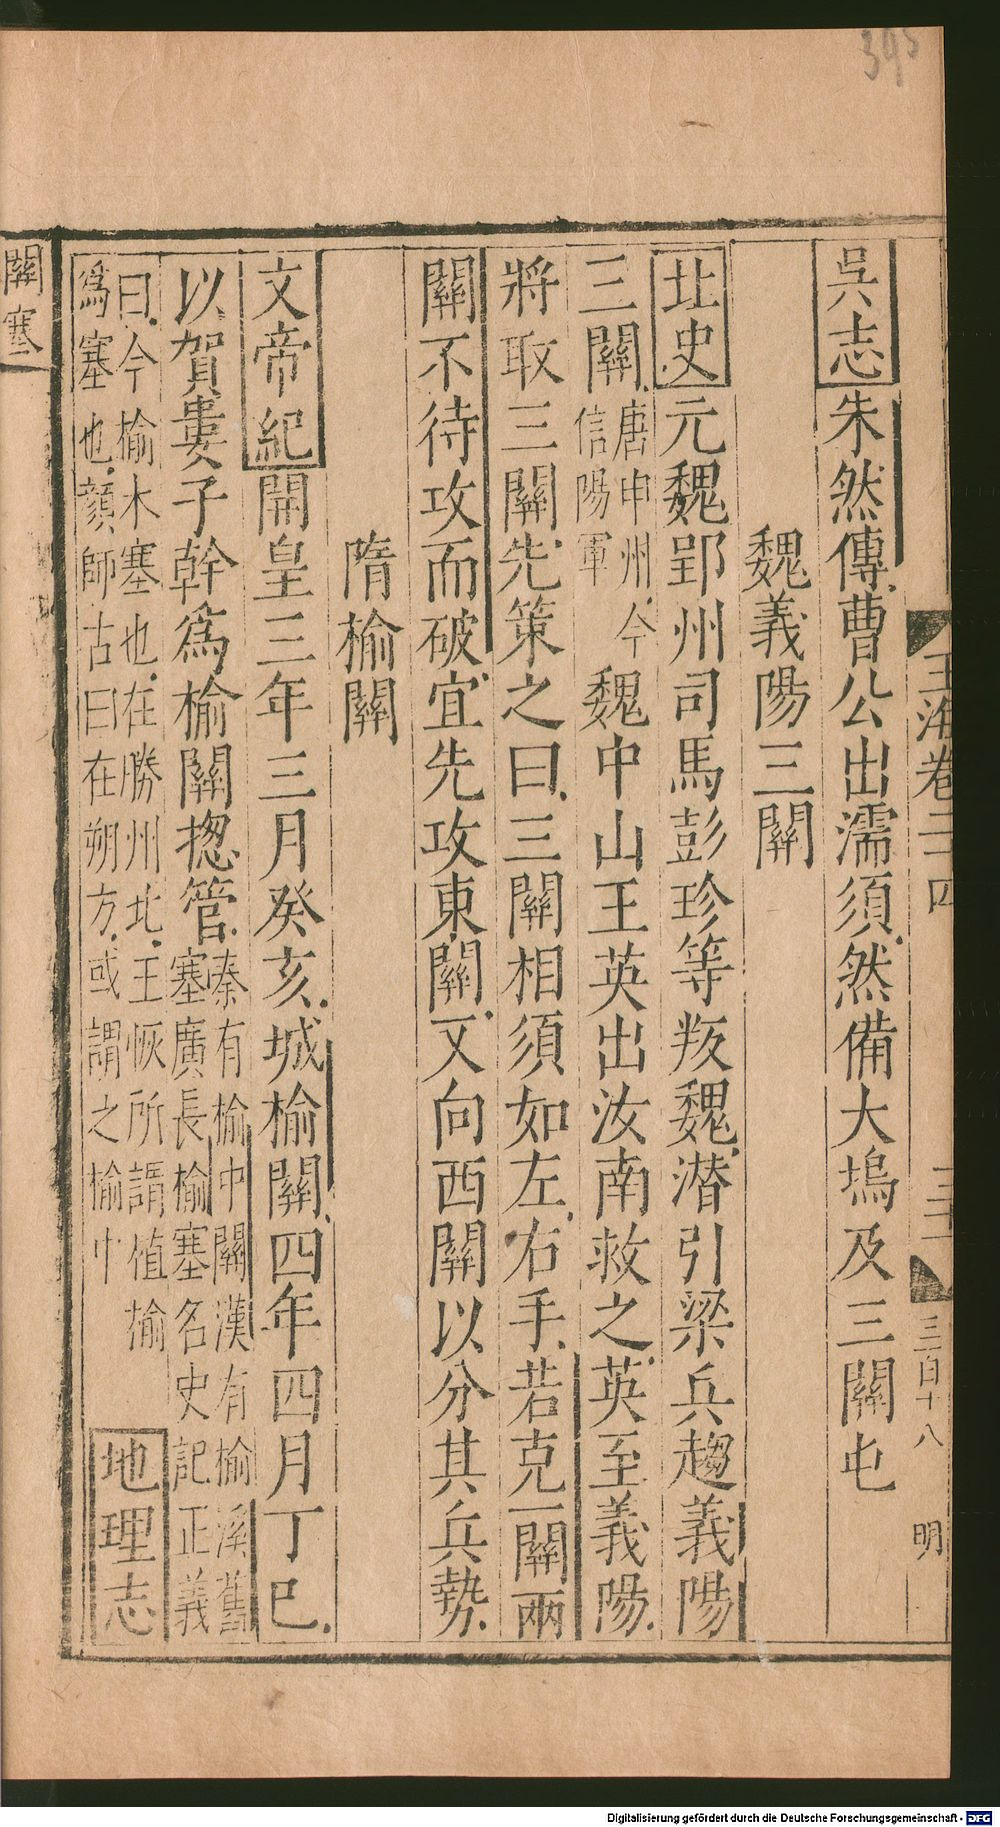 395
玉海卷二十四
三十一
三百十八
明
吳志朱然傳曹公出濡須然備大塢及三關屯
魏義陽三關
北史元魏郢州司馬彭珍等叛魏潜引梁兵趨義陽
三關唐申州今信陽軍魏中山王英出汝南救之英至義陽
將取三關先策之曰三關相須如左右手若克一關兩
關不待攻而破宜先攻東關又向西關以分其兵勢
隋榆關
文帝紀開皇三年三月癸亥城榆關四年四月丁巳
以賀婁子幹爲榆關揔管秦有榆中關漢有榆溪舊塞廣長榆塞名史記正義
曰今榆木塞也在勝州北王恢所謂植榆爲塞也顔師古曰在朔方或謂之榆中地理志
關塞
Digitalisierung gefördert durch die Deutsche Forschungsgemeinschaft - DFG